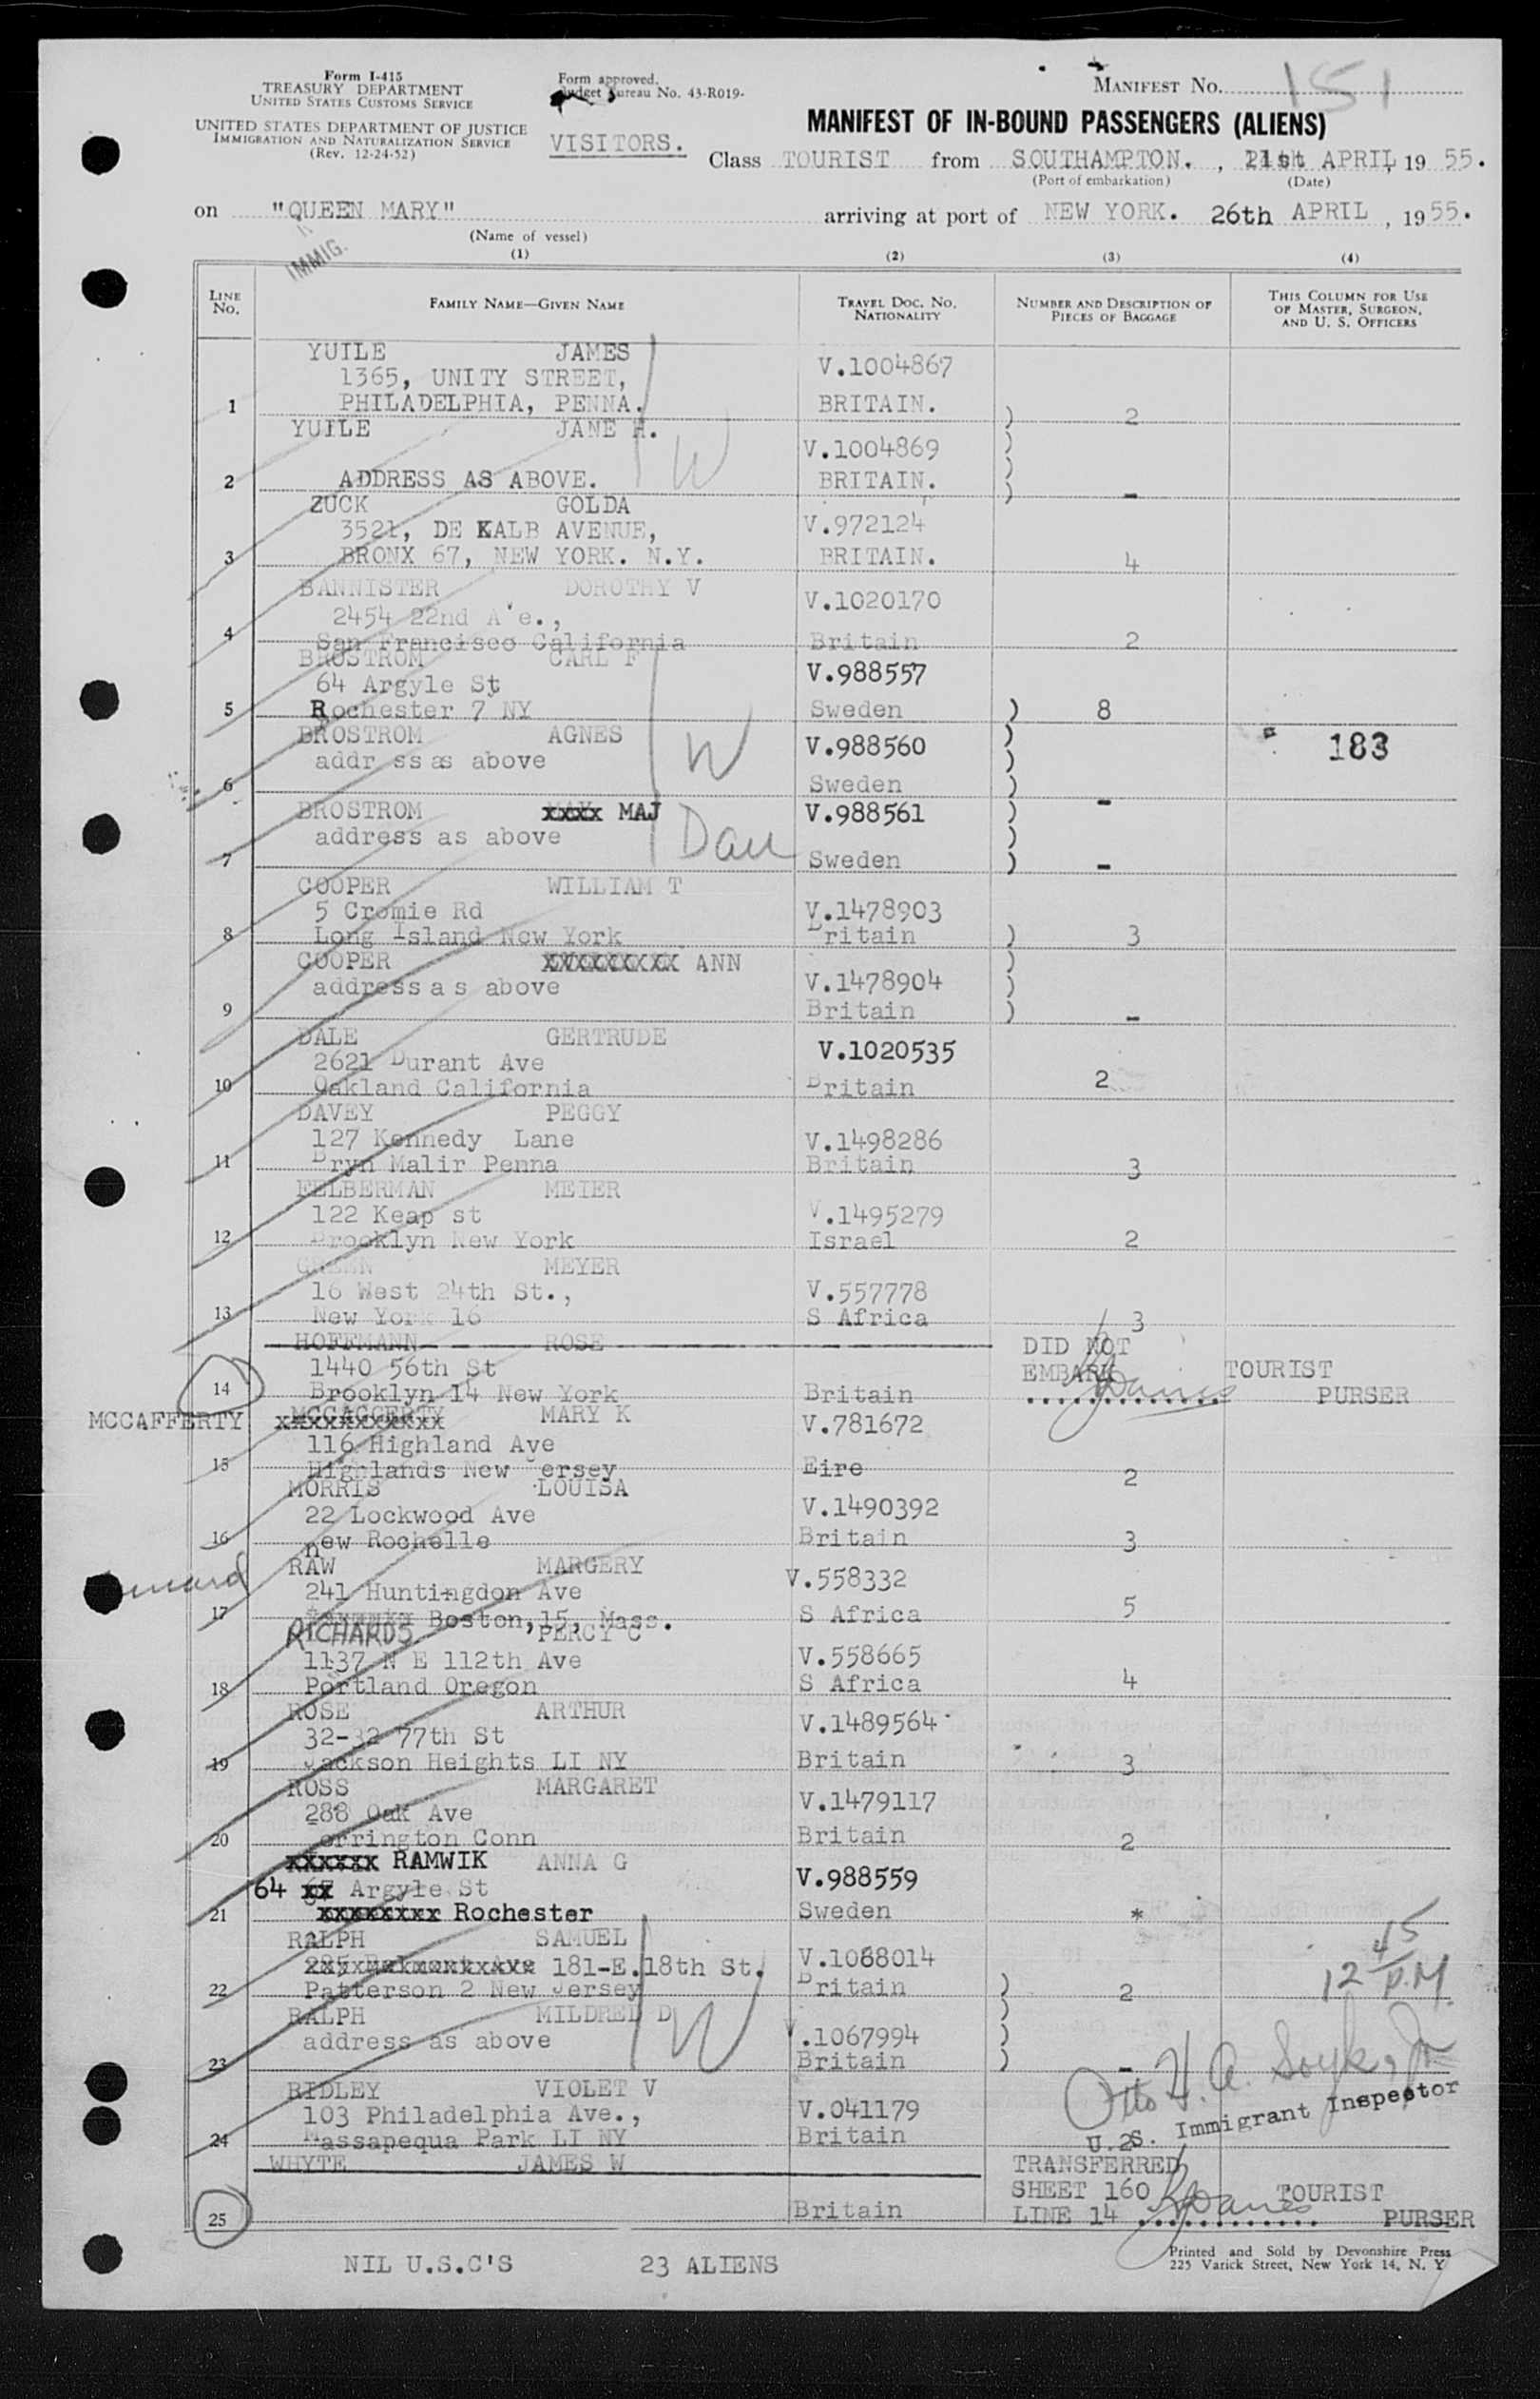 Form I-415
TREASURY DEPARTMENT
UNITED STATES CUSTOMS SERVICE
UNITED STATES DEPARTMENT OF JUSTICE
IMMIGRATION AND NATURALIZATION SERVICE
(Rev. 12-24-52)
Form approved.
Budget Bureau No. 43-R019-
VISITORS.
MANIFEST No. 151
MANIFEST OF IN-BOUND PASSENGERS (ALIENS)
Class TOURIST from SOUTHAMPTON. , 21st APRIL, 19 55.
(Port of embarkation) (Date)
on "QUEEN MARY" arriving at port of NEW YORK. 26th APRIL , 19 55.
(Name of vessel)
IMMIG.
(1) (2) (3) (4)
LINE No. FAMILY NAME—GIVEN NAME TRAVEL DOC. NO. NATIONALITY NUMBER AND DESCRIPTION OF PIECES OF BAGGAGE THIS COLUMN FOR USE OF MASTER, SURGEON, AND U. S. OFFICERS
YUILE JAMES V.1004867
1365, UNITY STREET,
1 PHILADELPHIA, PENNA. BRITAIN. ) 2
YUILE JANE H. V.1004869 )
W )
2 ADDRESS AS ABOVE. BRITAIN. ) -
ZUCK GOLDA
3521, DE KALB AVENUE, V.972124
3 BRONX 67, NEW YORK. N.Y. BRITAIN. 4
BANNISTER DOROTHY V V.1020170
2454 22nd A e.,
4 San Francisco California Britain 2
BROSTROM CARL F V.988557
64 Argyle St
5 Rochester 7 NY Sweden ) 8
BROSTROM AGNES V.988560 ) 183
addr ss as above W )
6 Sweden ) -
BROSTROM xxxx MAJ V.988561 )
address as above Dau )
7 Sweden ) -
COOPER WILLIAM T
5 Cromie Rd V.1478903
8 Long Island New York Britain ) 3
COOPER XXXXXXXXX ANN )
address a s above V.1478904 )
9 Britain ) -
DALE GERTRUDE V.1020535
2621 Durant Ave
10 Oakland California Britain 2
DAVEY PEGGY
127 Kennedy Lane V.1498286
11 Bryn Malir Penna Britain 3
FELBERMAN MEIER
122 Keap st V.1495279
12 Brooklyn New York Israel 2
GREEN MEYER
16 West 24th St., V.557778
13 New York 16 S Africa 3
HOFFMANN ROSE DID NOT
1440 56th St EMBARK TOURIST
14 Brooklyn 14 New York Britain PURSER
MCCAFFERTY MCCAGGERTY MARY K V.781672
116 Highland Ave
15 Highlands New Jersey Eire 2
MORRIS LOUISA
22 Lockwood Ave V.1490392
16 new Rochelle Britain 3
RAW MARGERY V.558332
241 Huntingdon Ave
17 Boston, 15, Mass. S Africa 5
RICHARDS PERCY C
1137 N E 112th Ave V.558665
18 Portland Oregon S Africa 4
ROSE ARTHUR
32-32 77th St V.1489564
19 Jackson Heights LI NY Britain 3
ROSS MARGARET
288 Oak Ave V.1479117
20 orrington Conn Britain 2
xxxxxx RAMWIK ANNA G
64 xx Argyle St V.988559
21 xxxxxxxx Rochester Sweden *
RALPH SAMUEL
181-E.18th St. V.1068014 12 45 P.M.
22 Patterson 2 New Jersey Britain ) 2
RALPH MILDRED D )
address as above W V.1067994 )
23 Britain ) -
Otto H. A. Soyk, Jr
U. S. Immigrant Inspector
RIDLEY VIOLET V
103 Philadelphia Ave., V.041179
24 Massapequa Park LI NY Britain 2
WHYTE JAMES W TRANSFERRED
SHEET 160 TOURIST
25 Britain LINE 14 PURSER
NIL U.S.C'S 23 ALIENS
Printed and Sold by Devonshire Press
225 Varick Street, New York 14, N. Y